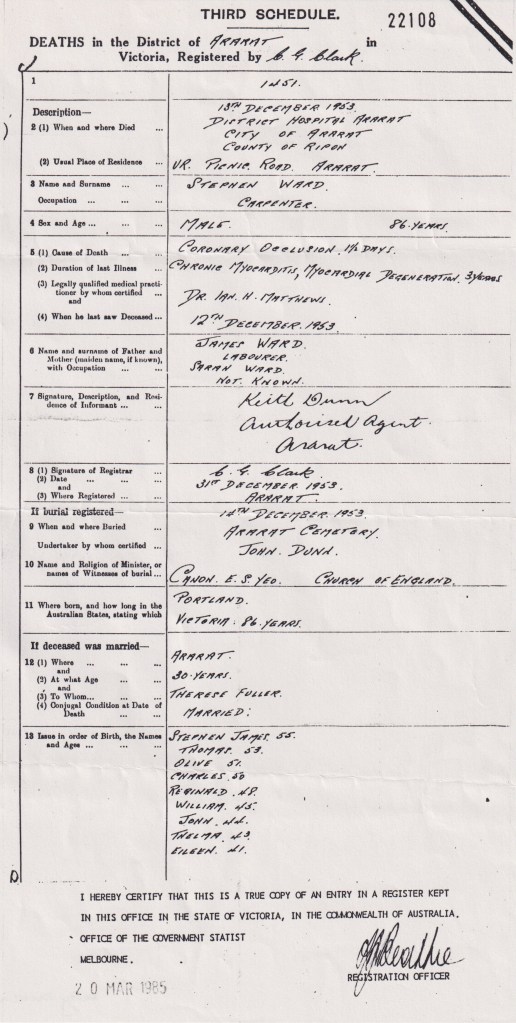 THIRD SCHEDULE.
22108
DEATHS in the District of ARARAT in
Victoria, Registered by C. G. Clark.
1
1451.
Description—
2 (1) When and where Died ...
13TH DECEMBER 1953.
DISTRICT HOSPITAL ARARAT
CITY OF ARARAT
COUNTY OF RIPON
(2) Usual Place of Residence ...
VR. PICNIC ROAD. ARARAT.
3 Name and Surname ... ... ...
STEPHEN WARD.
Occupation ... ... ...
CARPENTER.
4 Sex and Age ... ... ...
MALE. 86 YEARS.
5 (1) Cause of Death ... ... ...
CORONARY OCCLUSION. 1½ DAYS.
(2) Duration of last Illness ...
CHRONIC MYOCARDITIS, MYOCARDIAL DEGENERATION. 3 YEARS
(3) Legally qualified medical practi-
tioner by whom certified ...
and
DR. IAN. H. MATTHEWS.
(4) When he last saw Deceased ...
12TH DECEMBER. 1953.
6 Name and surname of Father and
Mother (maiden name, if known),
with Occupation ... ...
JAMES WARD.
LABOURER.
SARAH WARD.
NOT KNOWN.
7 Signature, Description, and Resi-
dence of Informant ... ...
Keith Dunn
Authorised Agent.
Ararat.
8 (1) Signature of Registrar ...
C. G. Clark
(2) Date ... ... ...
and
31ST DECEMBER. 1953.
(3) Where Registered ... ...
ARARAT.
If burial registered—
9 When and where Buried ...
14TH DECEMBER. 1953.
ARARAT CEMETERY.
Undertaker by whom certified ...
JOHN. DUNN.
10 Name and Religion of Minister, or
names of Witnesses of burial ...
CANON. E. S. YEO. CHURCH OF ENGLAND.
11 Where born, and how long in the
Australian States, stating which
PORTLAND.
VICTORIA. 86 YEARS.
If deceased was married—
12 (1) Where ... ... ...
and
ARARAT.
(2) At what Age ... ...
and
30 YEARS.
(3) To Whom... ... ...
THERESE FULLER.
(4) Conjugal Condition at Date of
Death ... ... ...
MARRIED:
13 Issue in order of Birth, the Names
and Ages ... ... ...
STEPHEN JAMES. 55.
THOMAS. 53.
OLIVE 51.
CHARLES. 50
REGINALD. 48.
WILLIAM. 45.
JOHN. 44.
THELMA. 43.
EILEEN. 41.
D
I HEREBY CERTIFY THAT THIS IS A TRUE COPY OF AN ENTRY IN A REGISTER KEPT
IN THIS OFFICE IN THE STATE OF VICTORIA, IN THE COMMONWEALTH OF AUSTRALIA.
OFFICE OF THE GOVERNMENT STATIST
MELBOURNE.
REGISTRATION OFFICER
20 MAR 1985